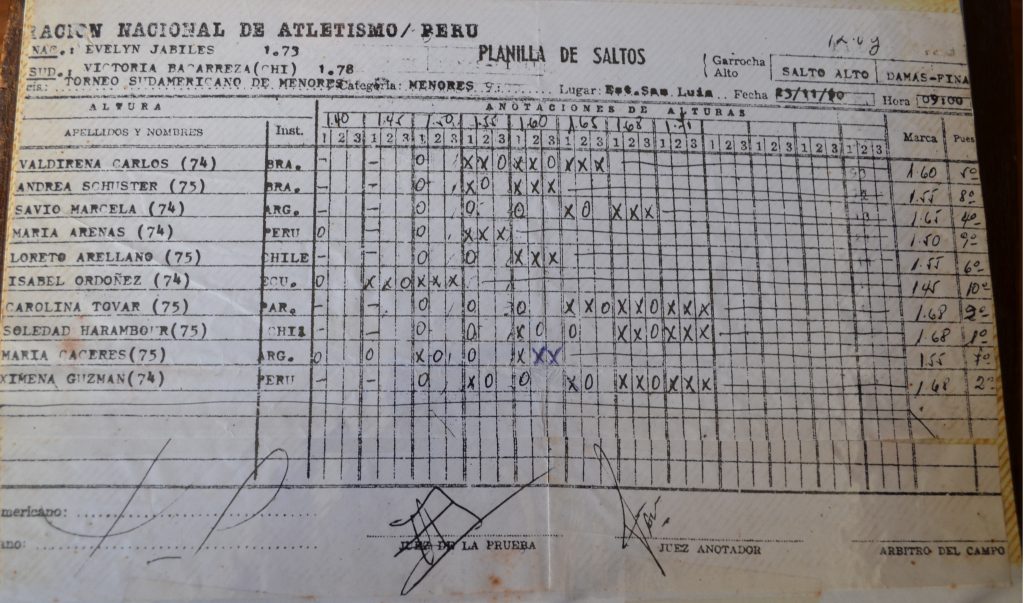 RACION NACIONAL DE ATLETISMO/ PERU
NAC.: EVELYN JABILES 1.73
SUD.: VICTORIA BACARREZA(CHI) 1.78
PLANILLA DE SALTOS
Garrocha
Alto
SALTO ALTO DAMAS-FINA
TORNEO SUDAMERICANO DE MENORES Categoria: MENORES Lugar: Est.San Luis Fecha 23/11/90 Hora 09:00
ALTURA ANOTACIONES DE ALTURAS
APELLIDOS Y NOMBRES Inst. 1.40 1.45 1.50 1.55 1.60 1.65 1.68 1.71 Marca Pues
1 2 3 1 2 3 1 2 3 1 2 3 1 2 3 1 2 3 1 2 3 1 2 3 1 2 3 1 2 3 1 2 3 1 2 3
VALDIRENA CARLOS (74) BRA. - - O X X O X X O X X X 1.60 5º
ANDREA SCHUSTER (75) BRA. - - O X O X X X 1.55 8º
SAVIO MARCELA (74) ARG. - - O O O X O X X X 1.65 4º
MARIA ARENAS (74) PERU O - O X X X 1.50 9º
LORETO ARELLANO (75) CHILE - - O O X X X 1.55 6º
ISABEL ORDOÑEZ (74) ECU. O X X O X X X 1.45 10º
CAROLINA TOVAR (75) PAR. - - O O O X X O X X O X X X 1.68 2º
SOLEDAD HARAMBOUR(75) CHI - - O O X O O X X O X X X 1.68 1º
MARIA CACERES(75) ARG. O O X O O X X X 1.55 7º
XIMENA GUZMAN(74) PERU - - O X O O X O X X O X X X 1.68 2º
mericano:
ano:
JUEZ DE LA PRUEBA
JUEZ ANOTADOR
ARBITRO DEL CAMPO